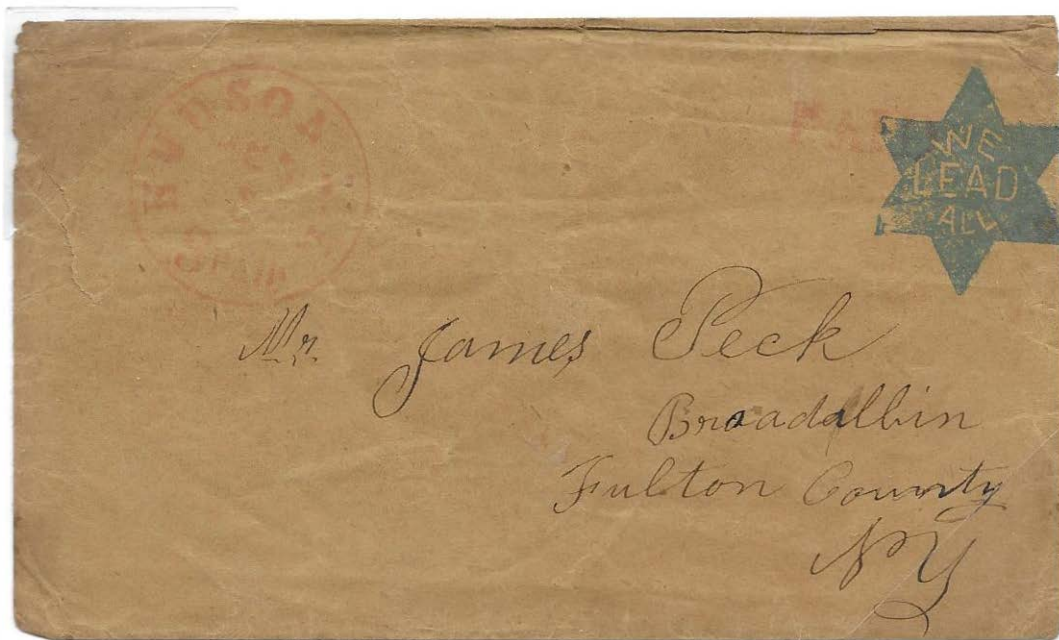 HUDSON
PAID
WE
LEAD
ALL
Mr. James Peck
Broadalbin
Fulton County
NY